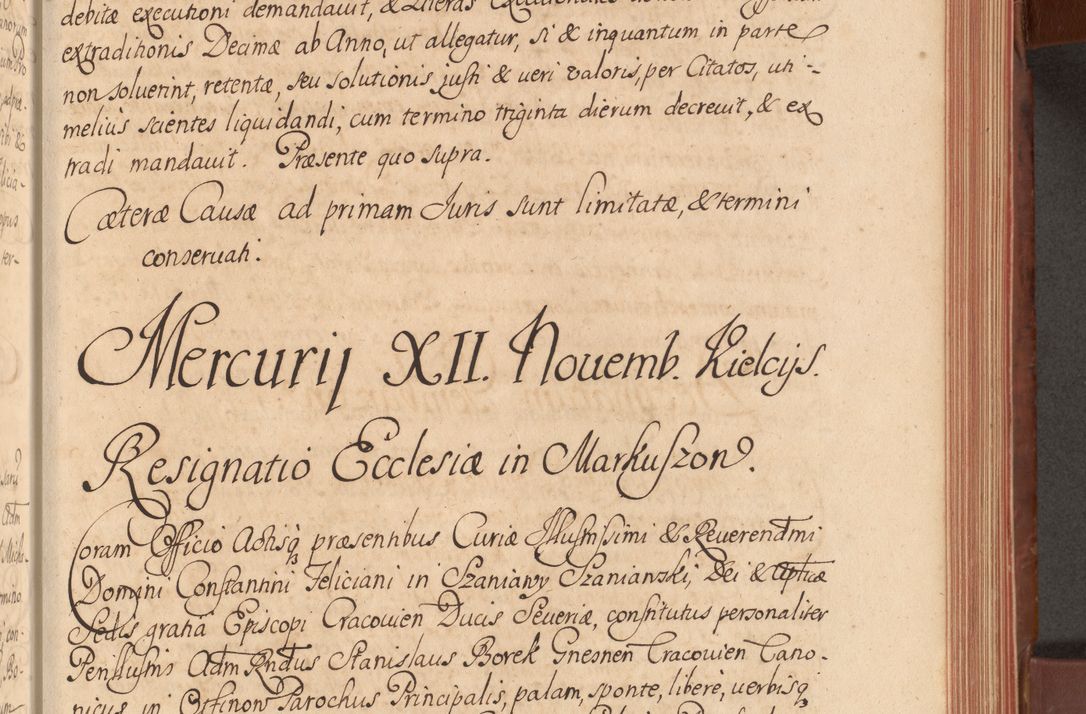 debitæ executioni demandauit, &
extraditionis Decimæ ab Anno, ut allegatur, si & inquantum in parte
non soluerint, retentæ, seu solutionis justi & ueri valoris, per Citatos, uti -
melius scientes liquidandi, cum termino triginta dierum decreuit, & ex
tradi mandauit. Præsente quo supra.
Cæteræ Causæ ad primam Iuris sunt limitatæ, & termini
conseruati.
Mercurij XII. Nouemb. Kielcijs.
Resignatio Ecclesiæ in Markuszow.
Coram Officio Actisq præsentibus Curiæ Illustrissimi & Reverendmi
Domini Constantini Feliciani in Szaniawy Szaniawski, Dei & Apticæ
Sedis gratia Episcopi Cracouien Ducis Seueriæ, constitutus personaliter
Perillustris Adm Rndus Stanislaus Borek Gnesnen Cracouien Cano-
nicus, in Offinow Parochus Principalis, palam, sponte, liberè, uerbisq